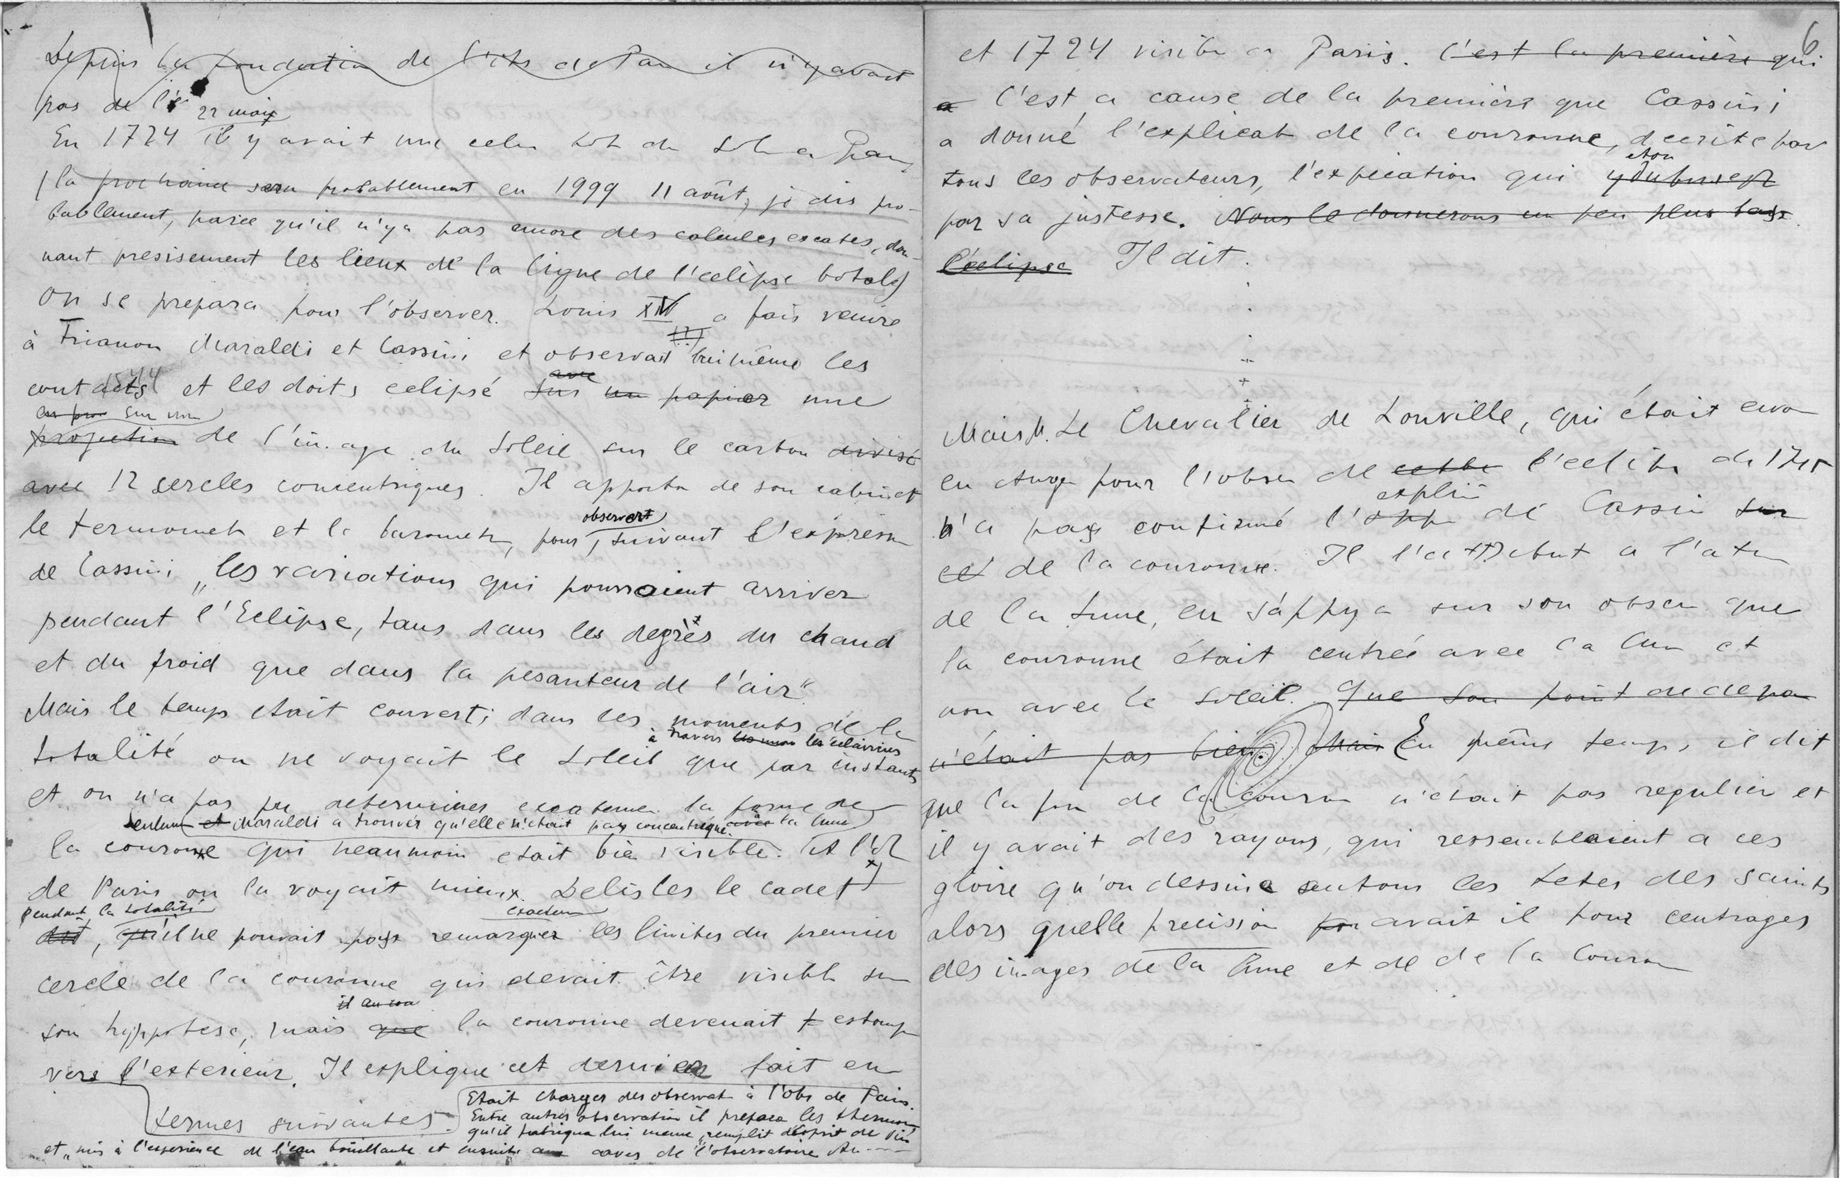 Depuis la fondation de il n'y avait
pas de
22 mai
En 1724 il y avait une du à
(la prochaine sera probablement en 1999 11 août, je dis pro-
bablement, parce qu'il n'y a pas encore des calcules exates, don-
nant presisement les lieux de la ligne de l'eclipse totale)
on se prepara pour l'observer. Louis XIV a fais venire
à Trianon Maraldi et Cassini et observait lui même les
contacts et les doits eclipsé sur un papier une
avec
sur une
projection de l'image du Soleil sur le carton divisé
avec 12 sercles concentriques. Il apporta de son cabinet
le termometr et le barometr, pour, suivant l'expresion
observert
de Cassini „les variations qui pourroient arriver
pendant l'Eclipse, tans dans les degrès du chaud
et du froid que dans la pesanteur de l'air“
Mais le temps etait couvert; dans les moments de la
à travers les eclaircies
totalité on ne voyait le Soleil que par instants
et on n'a pas pu determiner exactemen la forme de
seulem et Maraldi a trouver qu'elle n'etait pas concentrique avec la lune
la couronne qui neanmoin etait biè visible. A l'
de Paris on la voyait mieux. Delisles le cadet
pendant la totalité
exactem
dit, qu'il ne pouvait pas remarquer les limites du premier
cercle de la couronne qui devait être visible
il
son hyppotese, mais que la couronne devenait estomp
vers l'exterieur. Il explique cet dernier fait en
termes suivantes.
Etait charger des observat à l'obs de Paris.
Entre autres observation il prepara les thermom
qu'il fabriqua lui meme, remplit d'esprit de vin
et „mis à l'experience de l'eau bouillante et ensuite aux caves de l'observatoire
6
et 1724 visible a Paris. C'est la première qui
a C'est a cause de la première que Cassini
a donné l'explicat de la couronne, decrite par
tous les observateurs, l'expication qui
par sa justesse. Nous le donnerons un peu plus bas.
L'eclipse Il dit:
Mais M. Le Chevalier de Louville, qui était
en pour l'obser de cette l'eclips de 1715
n'a pas confirmé l' de Cassini sur
de la couronne. Il l'a attribut a l'atm
de la Lune, en s'appya sur son obser que
la couronne était centrée avec la lun et
non avec le Soleil. Que son point de depa
n'était pas bien. Mais En même temps, il dit
que la de la Couron n'était pas regulier et
il y avait des rayons, qui ressemblaient a ces
gloire qu'on dessine autour les tetes des saints
alors quelle precision avait il pour centrages
des images de la lune et de de la Couron